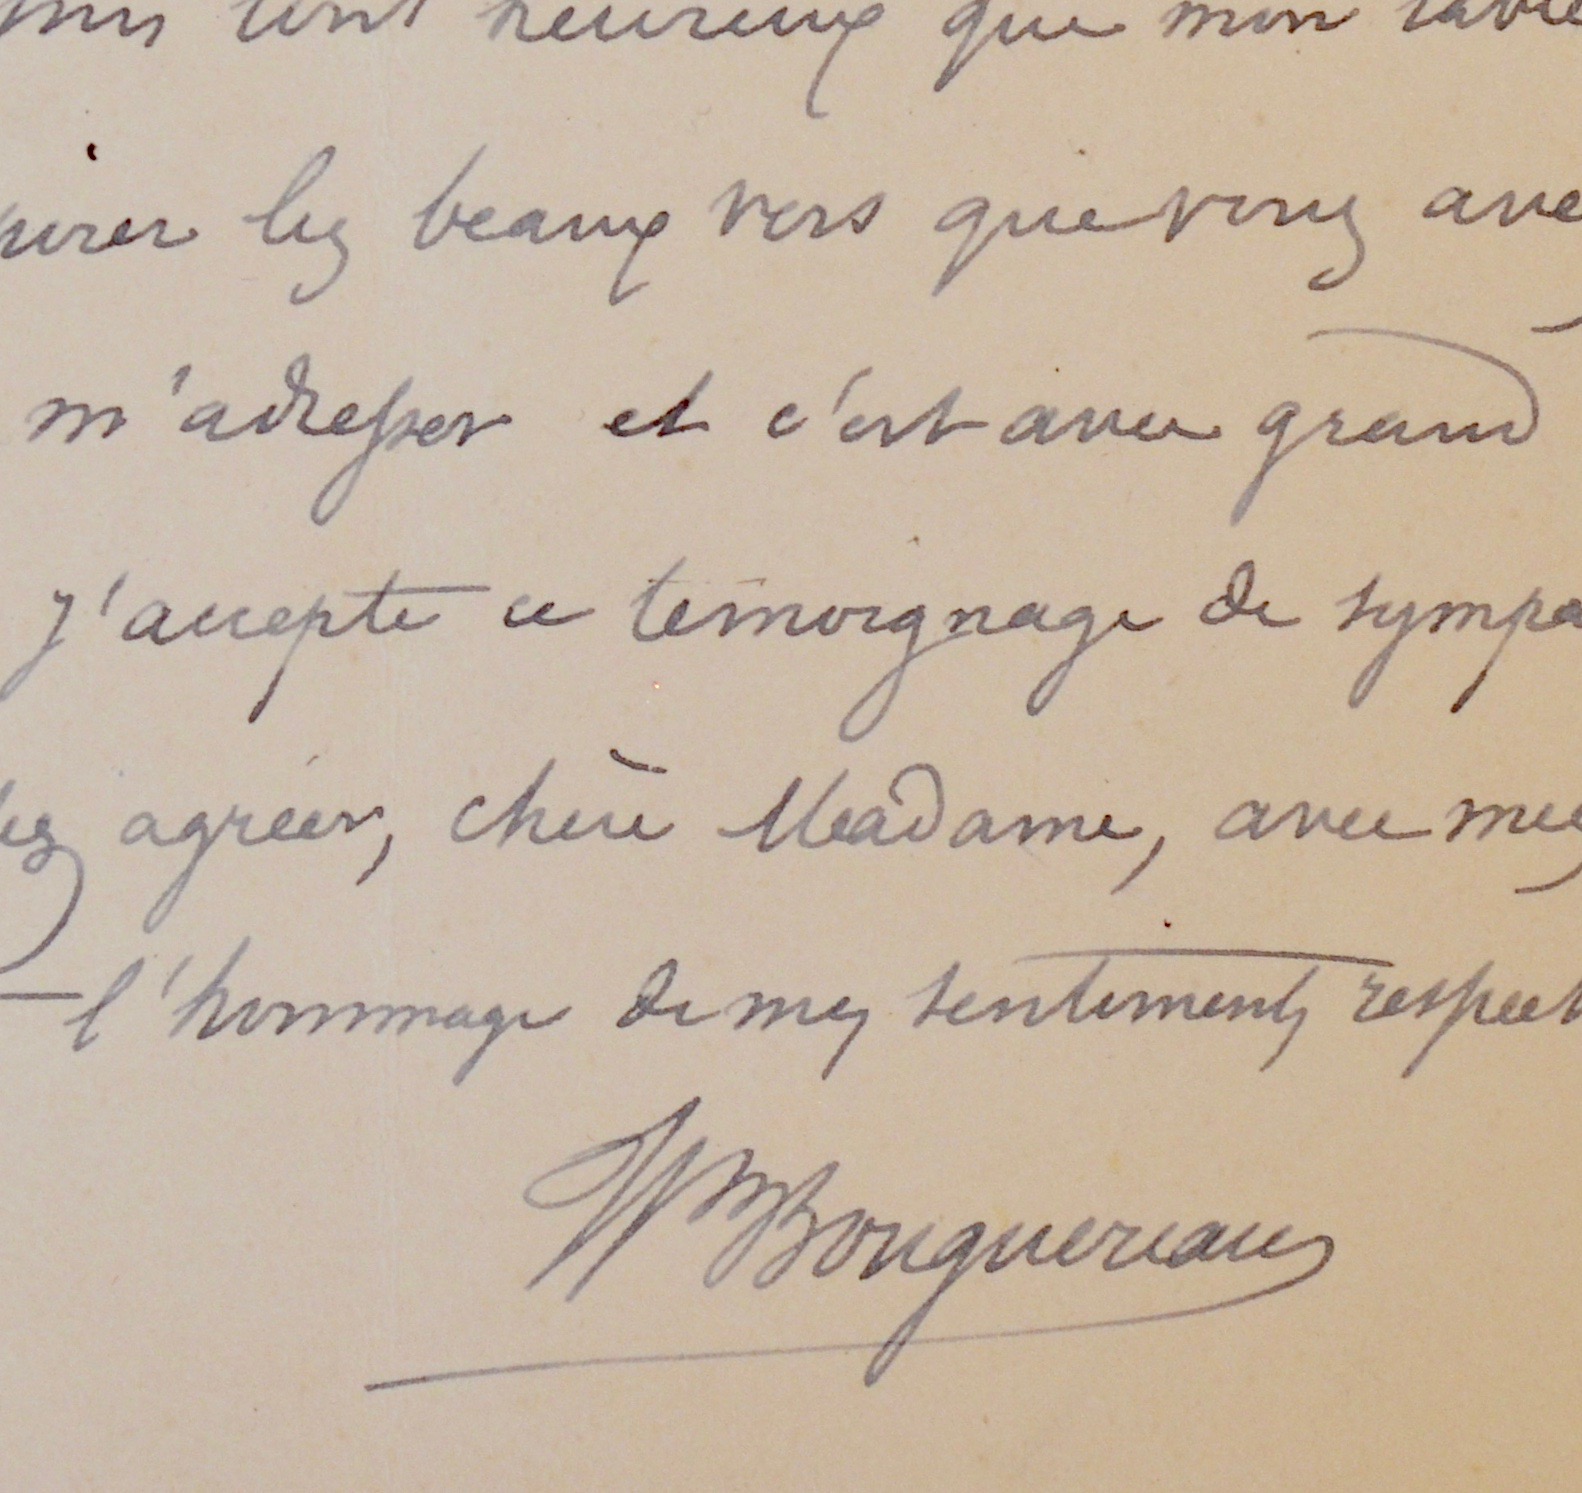 suis tout heureux que mon table
pirer les beaux vers que vous ave
m'adresser et c'est avec grand
j'accepte ce témoignage de sympa
les agréer, chère Madame, avec mes
l'hommage de mes sentiments respect
Wm Bouguereau